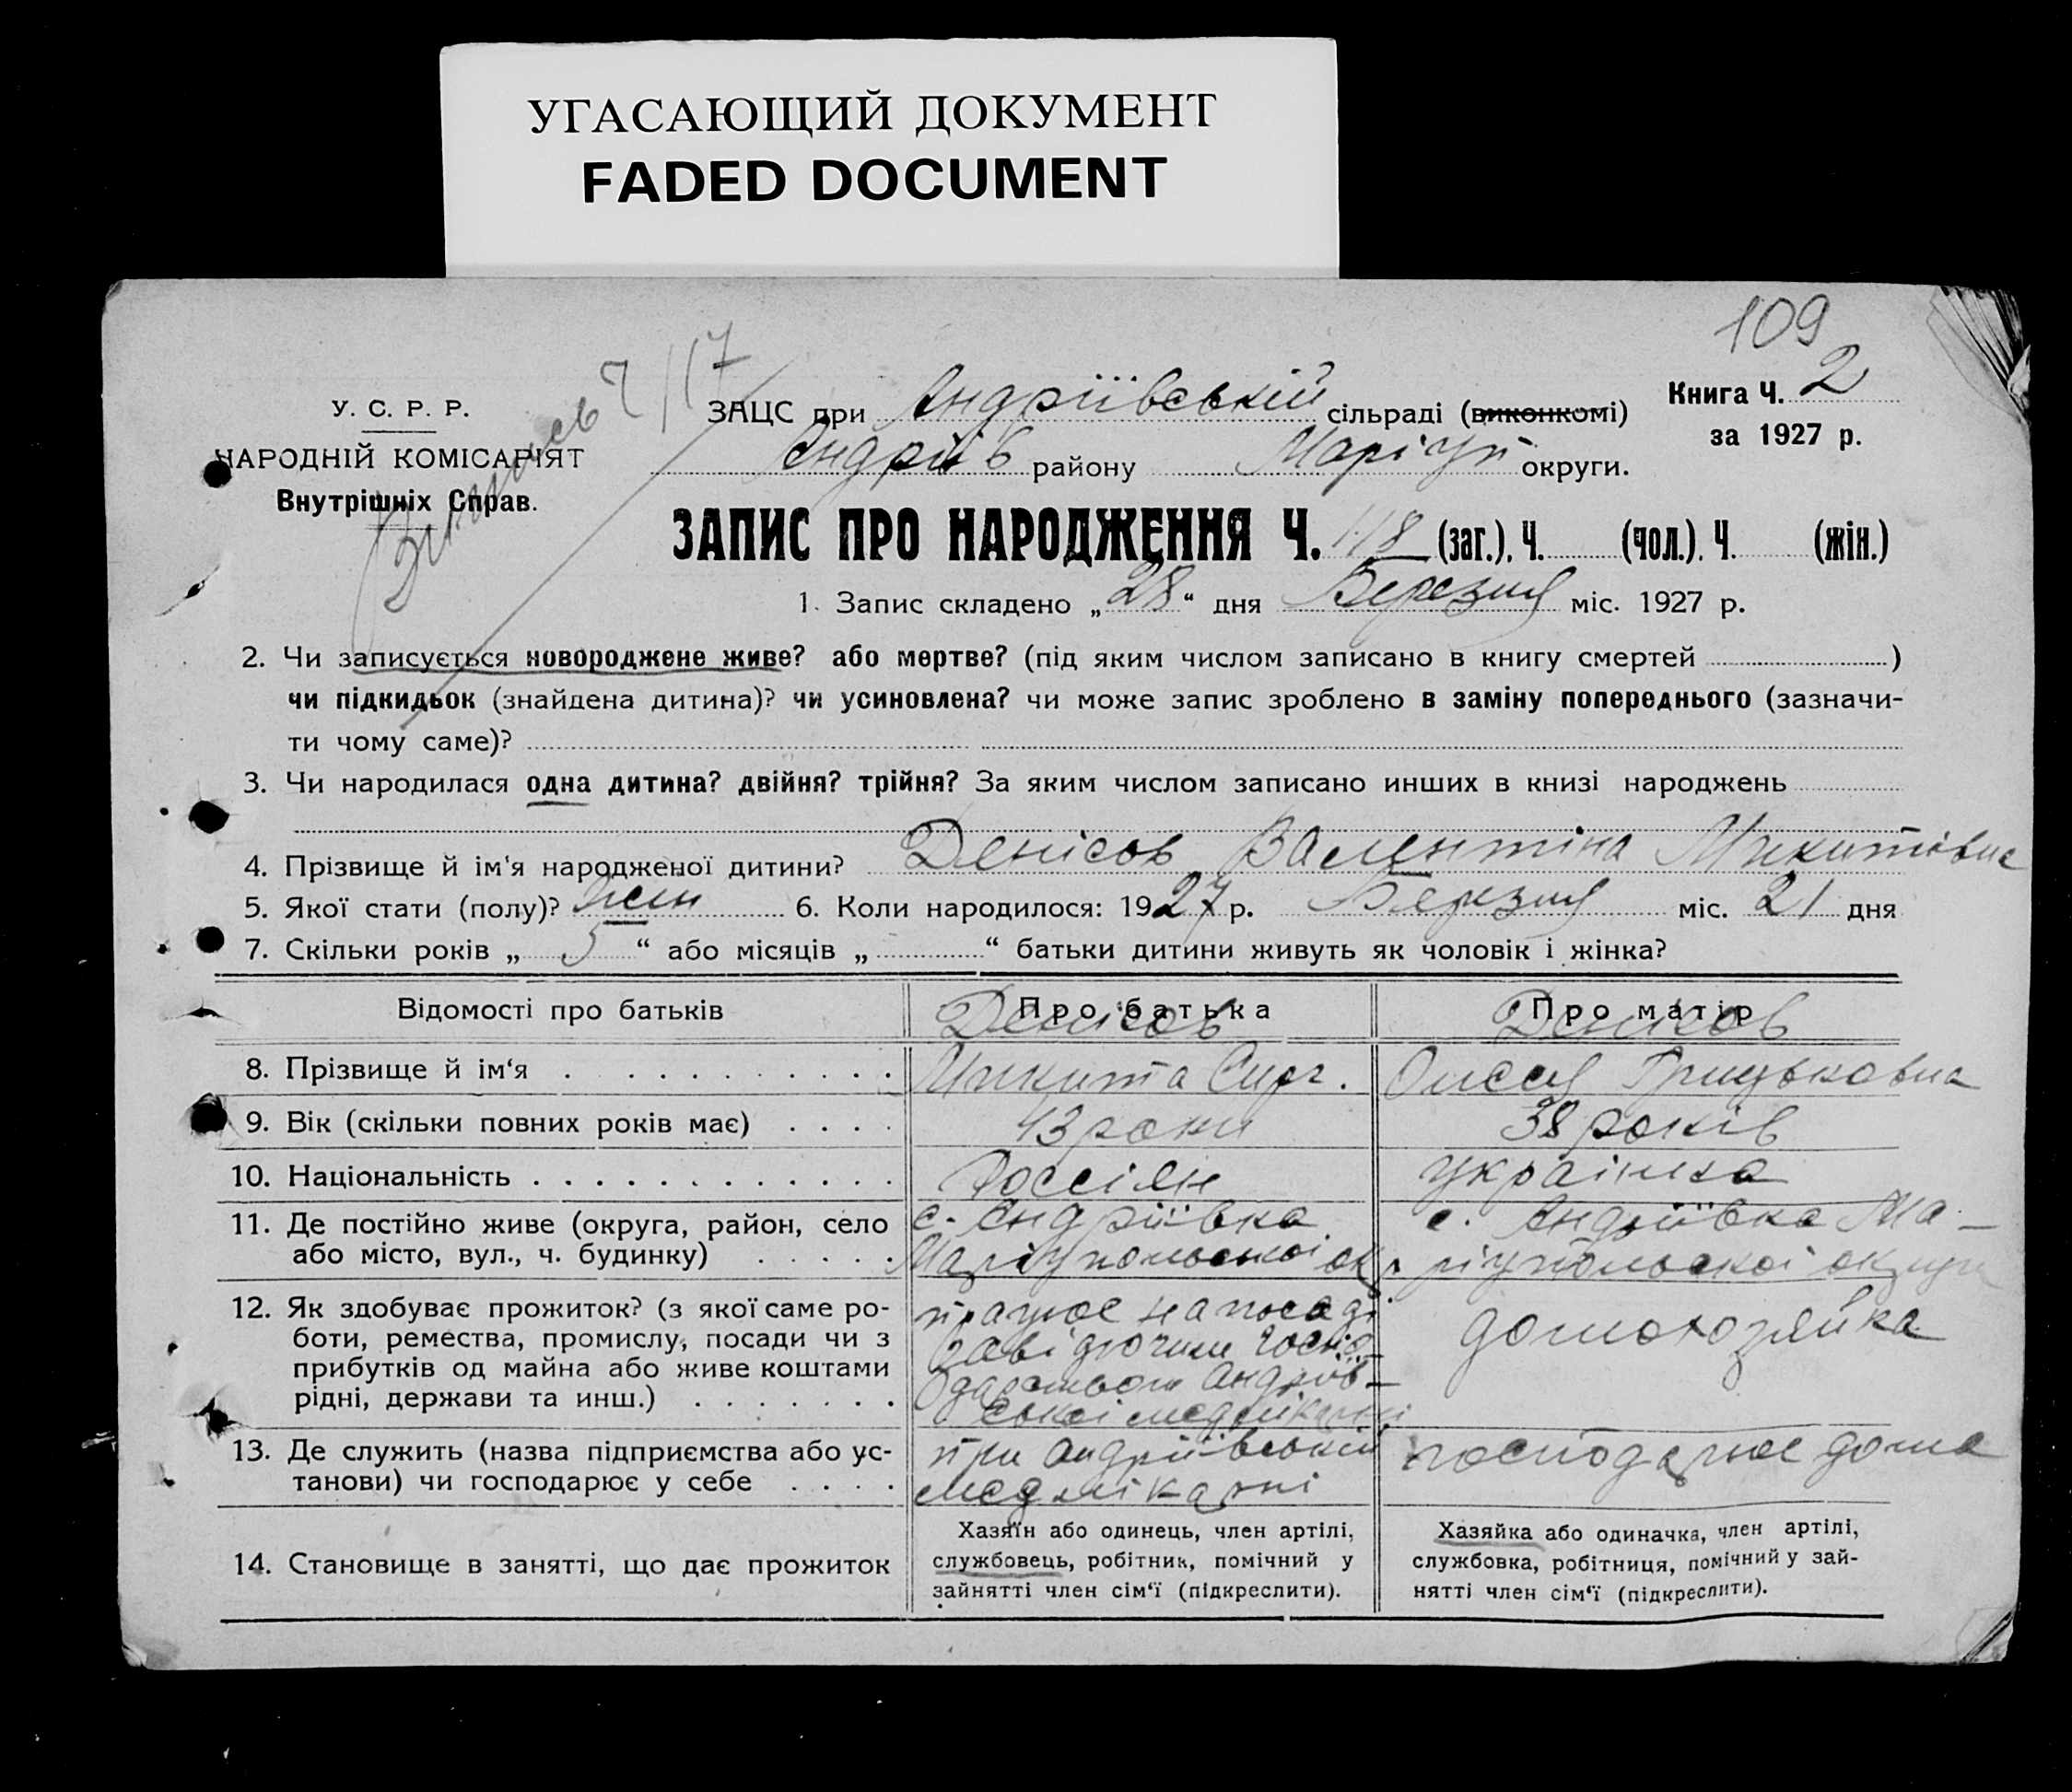 УГАСАЮЩИЙ ДОКУМЕНТ
FADED DOCUMENT
109
У. С. Р. Р.
НАРОДНІЙ КОМІСАРІЯТ
Внутрішніх Справ.
ЗАЦС при Андріївській сільраді (виконкомі)
Книга Ч. 2
за 1927 р.
Андріїв району Маріуп округи.
ЗАПИС ПРО НАРОДЖЕННЯ Ч. 118 (заг.), Ч. (чол.), Ч. (жін.)
1. Запис складено „28“ дня Березня міс. 1927 р.
2. Чи записується новороджене живе? або мертве? (під яким числом записано в книгу смертей )
чи підкидьок (знайдена дитина)? чи усиновлена? чи може запис зроблено в заміну попереднього (зазначи-
ти чому саме)?
3. Чи народилася одна дитина? двійня? трійня? За яким числом записано инших в книзі народжень
4. Прізвище й ім'я народженої дитини? Денісов Валентіна Микитівна
5. Якої стати (полу)? жен 6. Коли народилося: 1927 р. Березня міс. 21 дня
7. Скільки років „ 5 “ або місяців „ “ батьки дитини живуть як чоловік і жінка?
Відомості про батьків Про батька Про матір
Денісов Денісов
8. Прізвище й ім‘я Микита Серг. Олеся Грицьковна
9. Вік (скільки повних років має) 43 роки 38 років
10. Національність Россіян українка
11. Де постійно живе (округа, район, село с. Андріївка с. Андріївка Ма-
або місто, вул., ч. будинку) Маріупольської окр. ріупольської округи
12. Як здобуває прожиток? (з якої саме ро- працює на посаді
боти, ремества, промислу, посади чи з завідуючим госпо- домохозяйка
прибутків од майна або живе коштами дарством Андріїв-
рідні, держави та инш.) ської медлікарні
13. Де служить (назва підприємства або ус- при Андріївській господарює дома
танови) чи господарює у себе медлікарні
14. Становище в занятті, що дає прожиток
Хазяїн або одинець, член артілі,
службовець, робітник, помічний у
зайнятті член сім‘ї (підкреслити).
Хазяйка або одиначка, член артілі,
службовка, робітниця, помічний у зай-
нятті член сім‘ї (підкреслити).